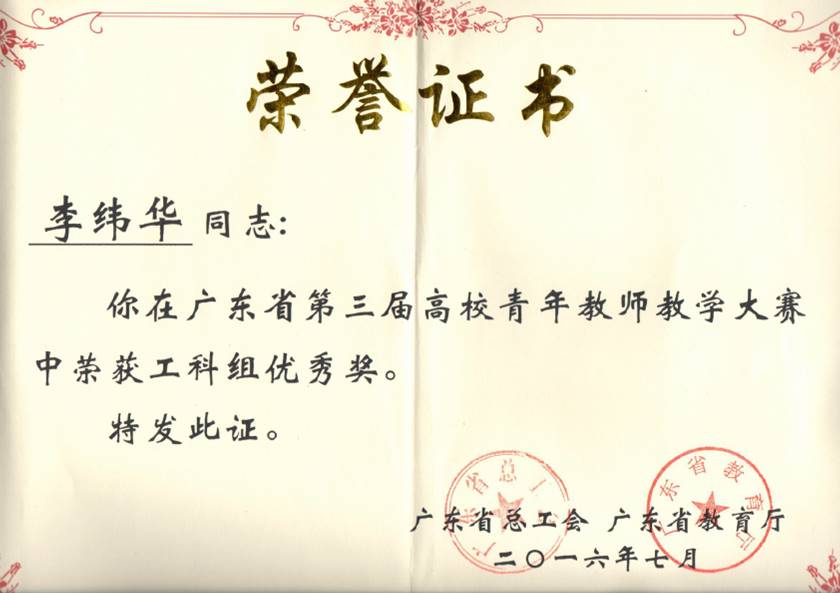 荣誉证书
李纬华 同志:
你在广东省第三届高校青年教师教学大赛
中荣获工科组优秀奖。
特发此证。
广东省总工
广东省教育厅
广东省总工会 广东省教育厅
二〇一六年七月